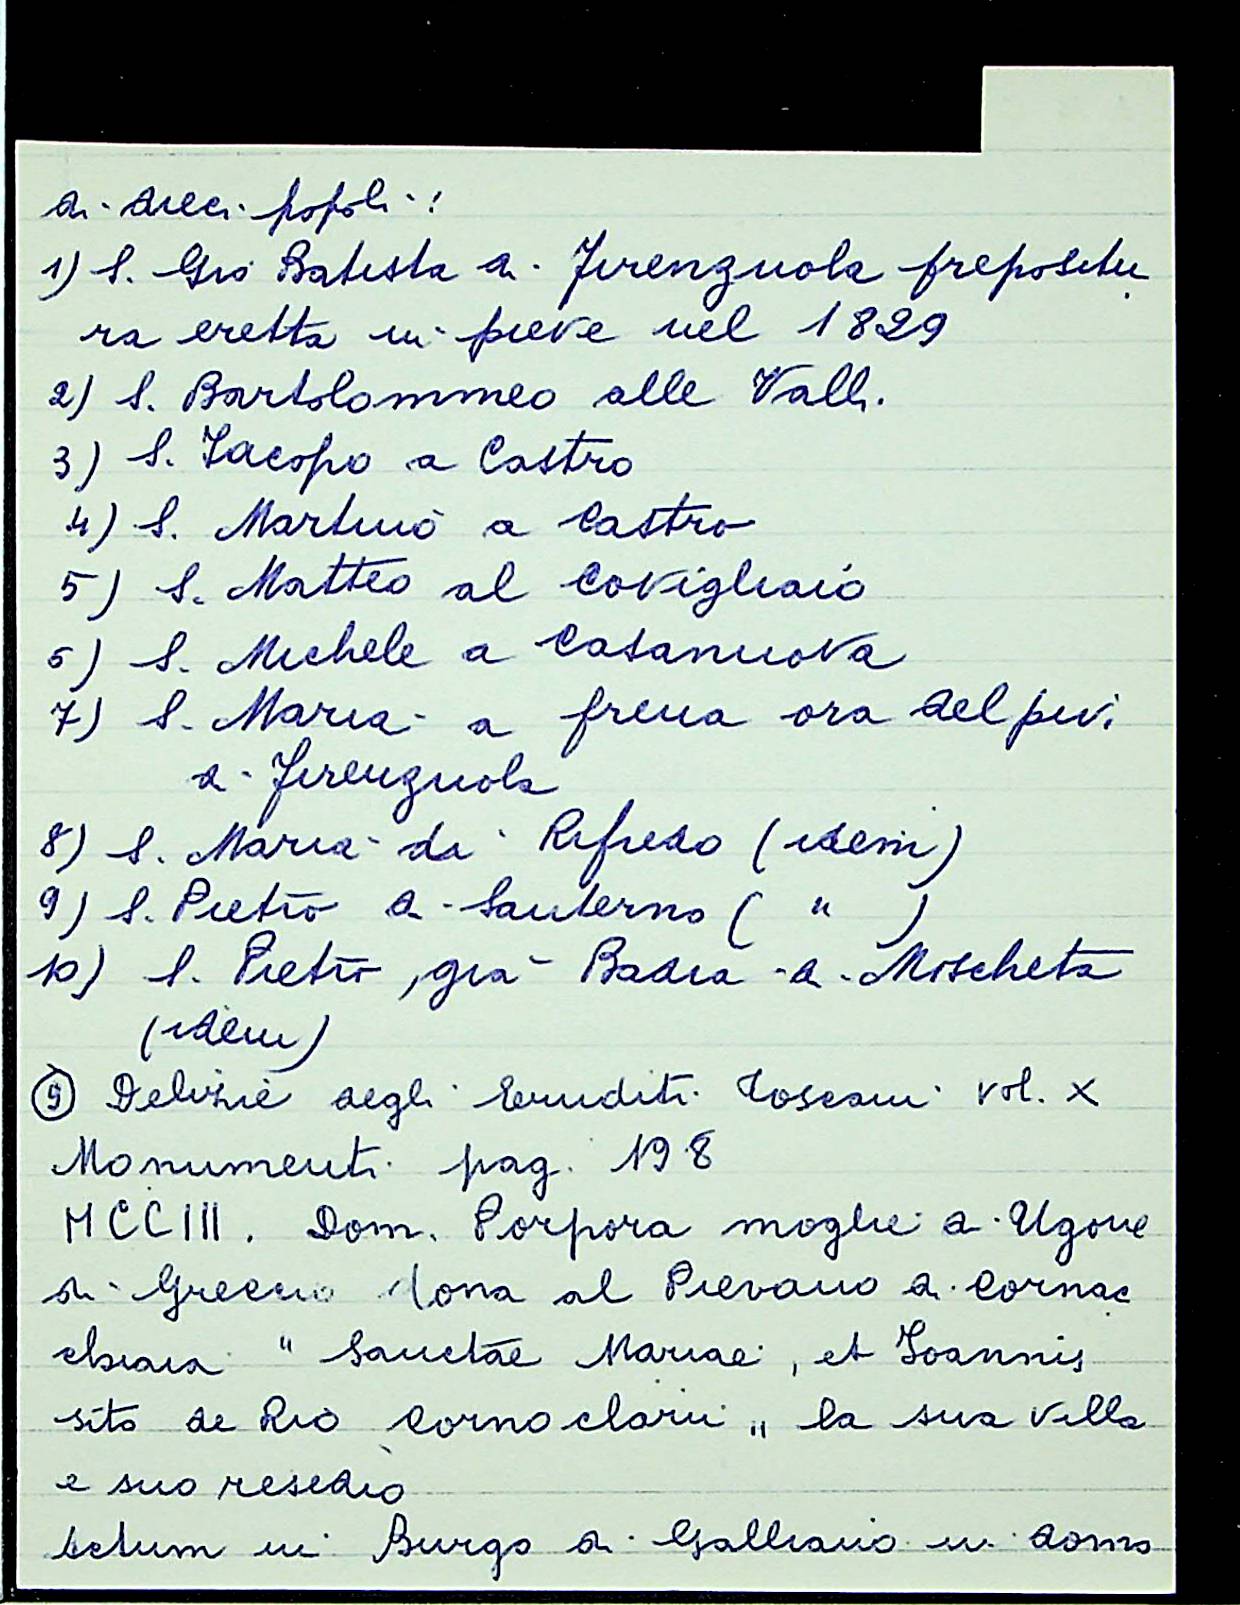 di dieci popoli:
1) S. Gio Batista di Firenzuola prepositu
ra eretta in pieve nel 1829
2) S. Bartolommeo alle Valli.
3) S. Iacopo a Castro
4) S. Martino a Castro
5) S. Matteo al Covigliaio
6) S. Michele a Casanuova
7) S. Maria a frena ora del pivi
di Firenzuola
8) S. Maria da Rifredo (idem)
9) S. Pietro di Santerno ( " )
10) S. Pietro, già Badia di Moscheta
(idem)
⑨ Delizie degli Eruditi Toscani vol. X
Monumenti pag. 198
MCCIII. Dom. Porpora moglie di Ugone
di Greccio dona al Pievano di Cornac
chiaia " Sanctae Mariae, et Joannis
sito de Rio Cornoclarii „ la sua villa
e suo resedio
Actum in Burgo di Galliano in domo